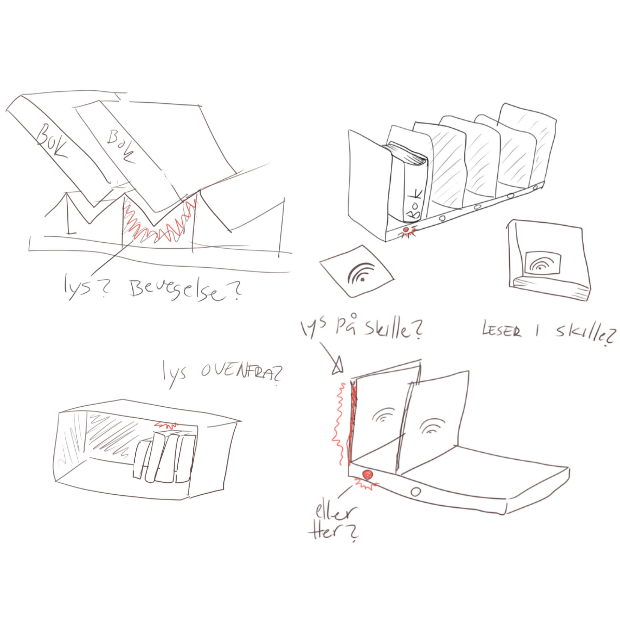 Bok
Bok
lys? Bevegelse?
Bok
lys på skille?
LESER I skille?
lys OVENFRA?
eller
Her?